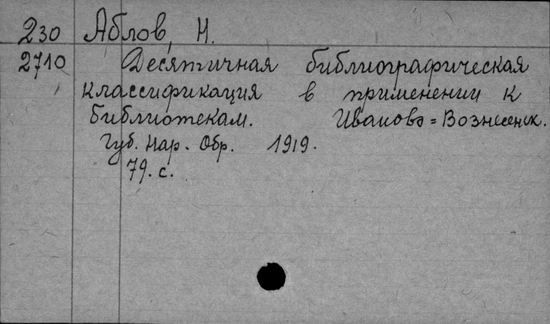 230 Аблов, Н.
2710 Десятичная библиографическая
классификация в применении к
библиотекам. Иваново=Вознесенск.
Губ. Нар. Обр. 1919.
79. с.